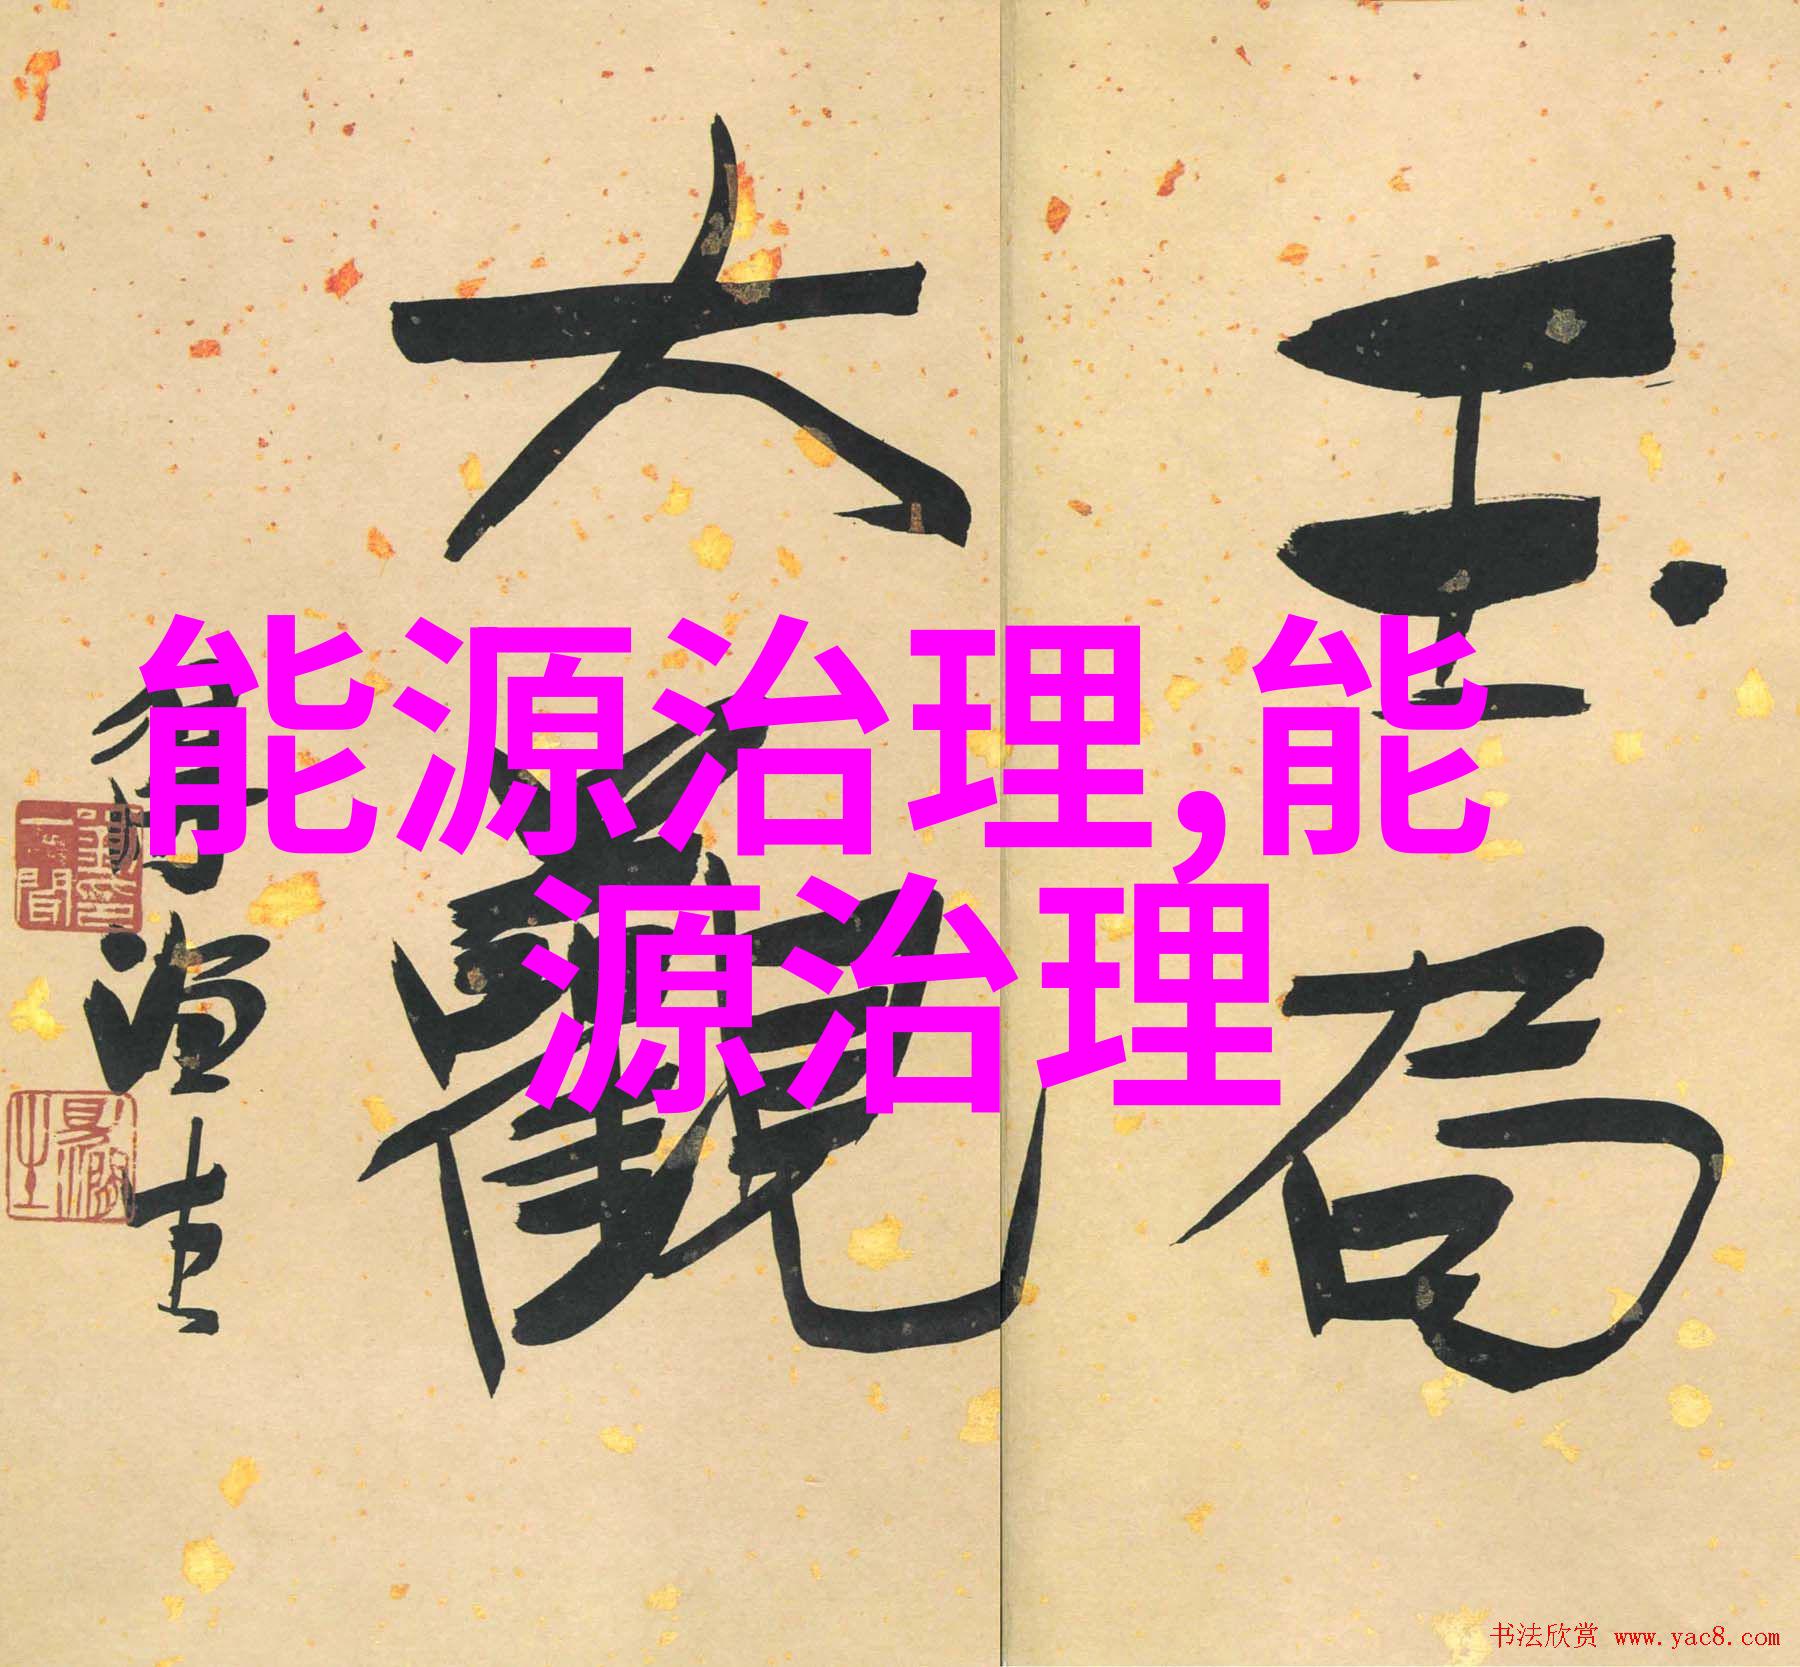 能源治理,能
源治理
玉局
大觀
书法欣赏 www.yac8.com